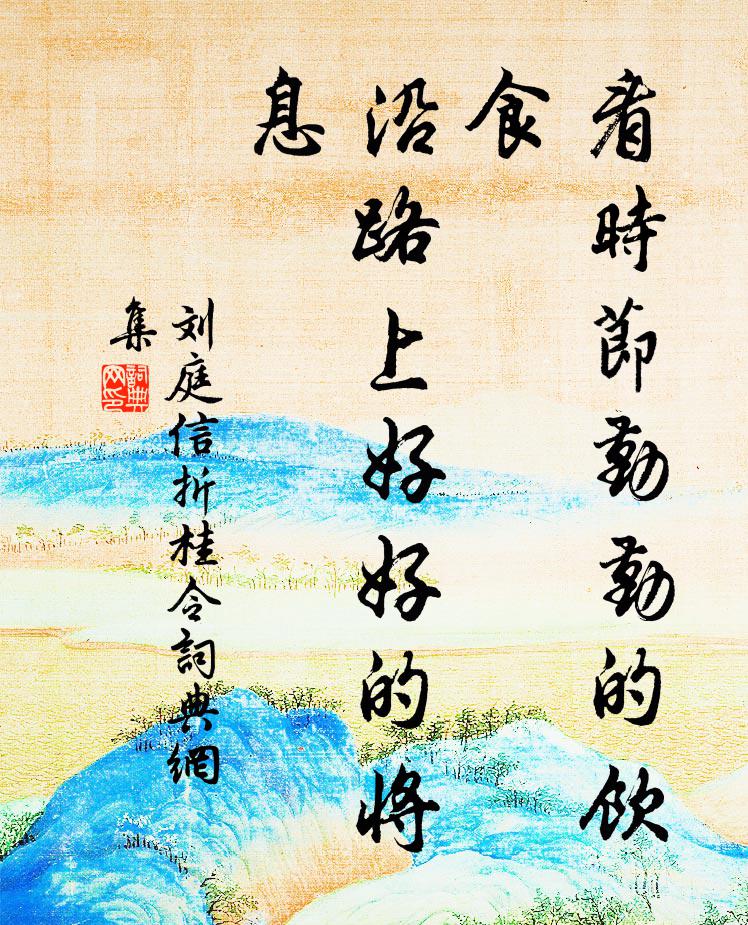 看時節勤勤的飲
食
沿路上好好的將
息
刘庭信折桂令詞典網
集
詞典
网印